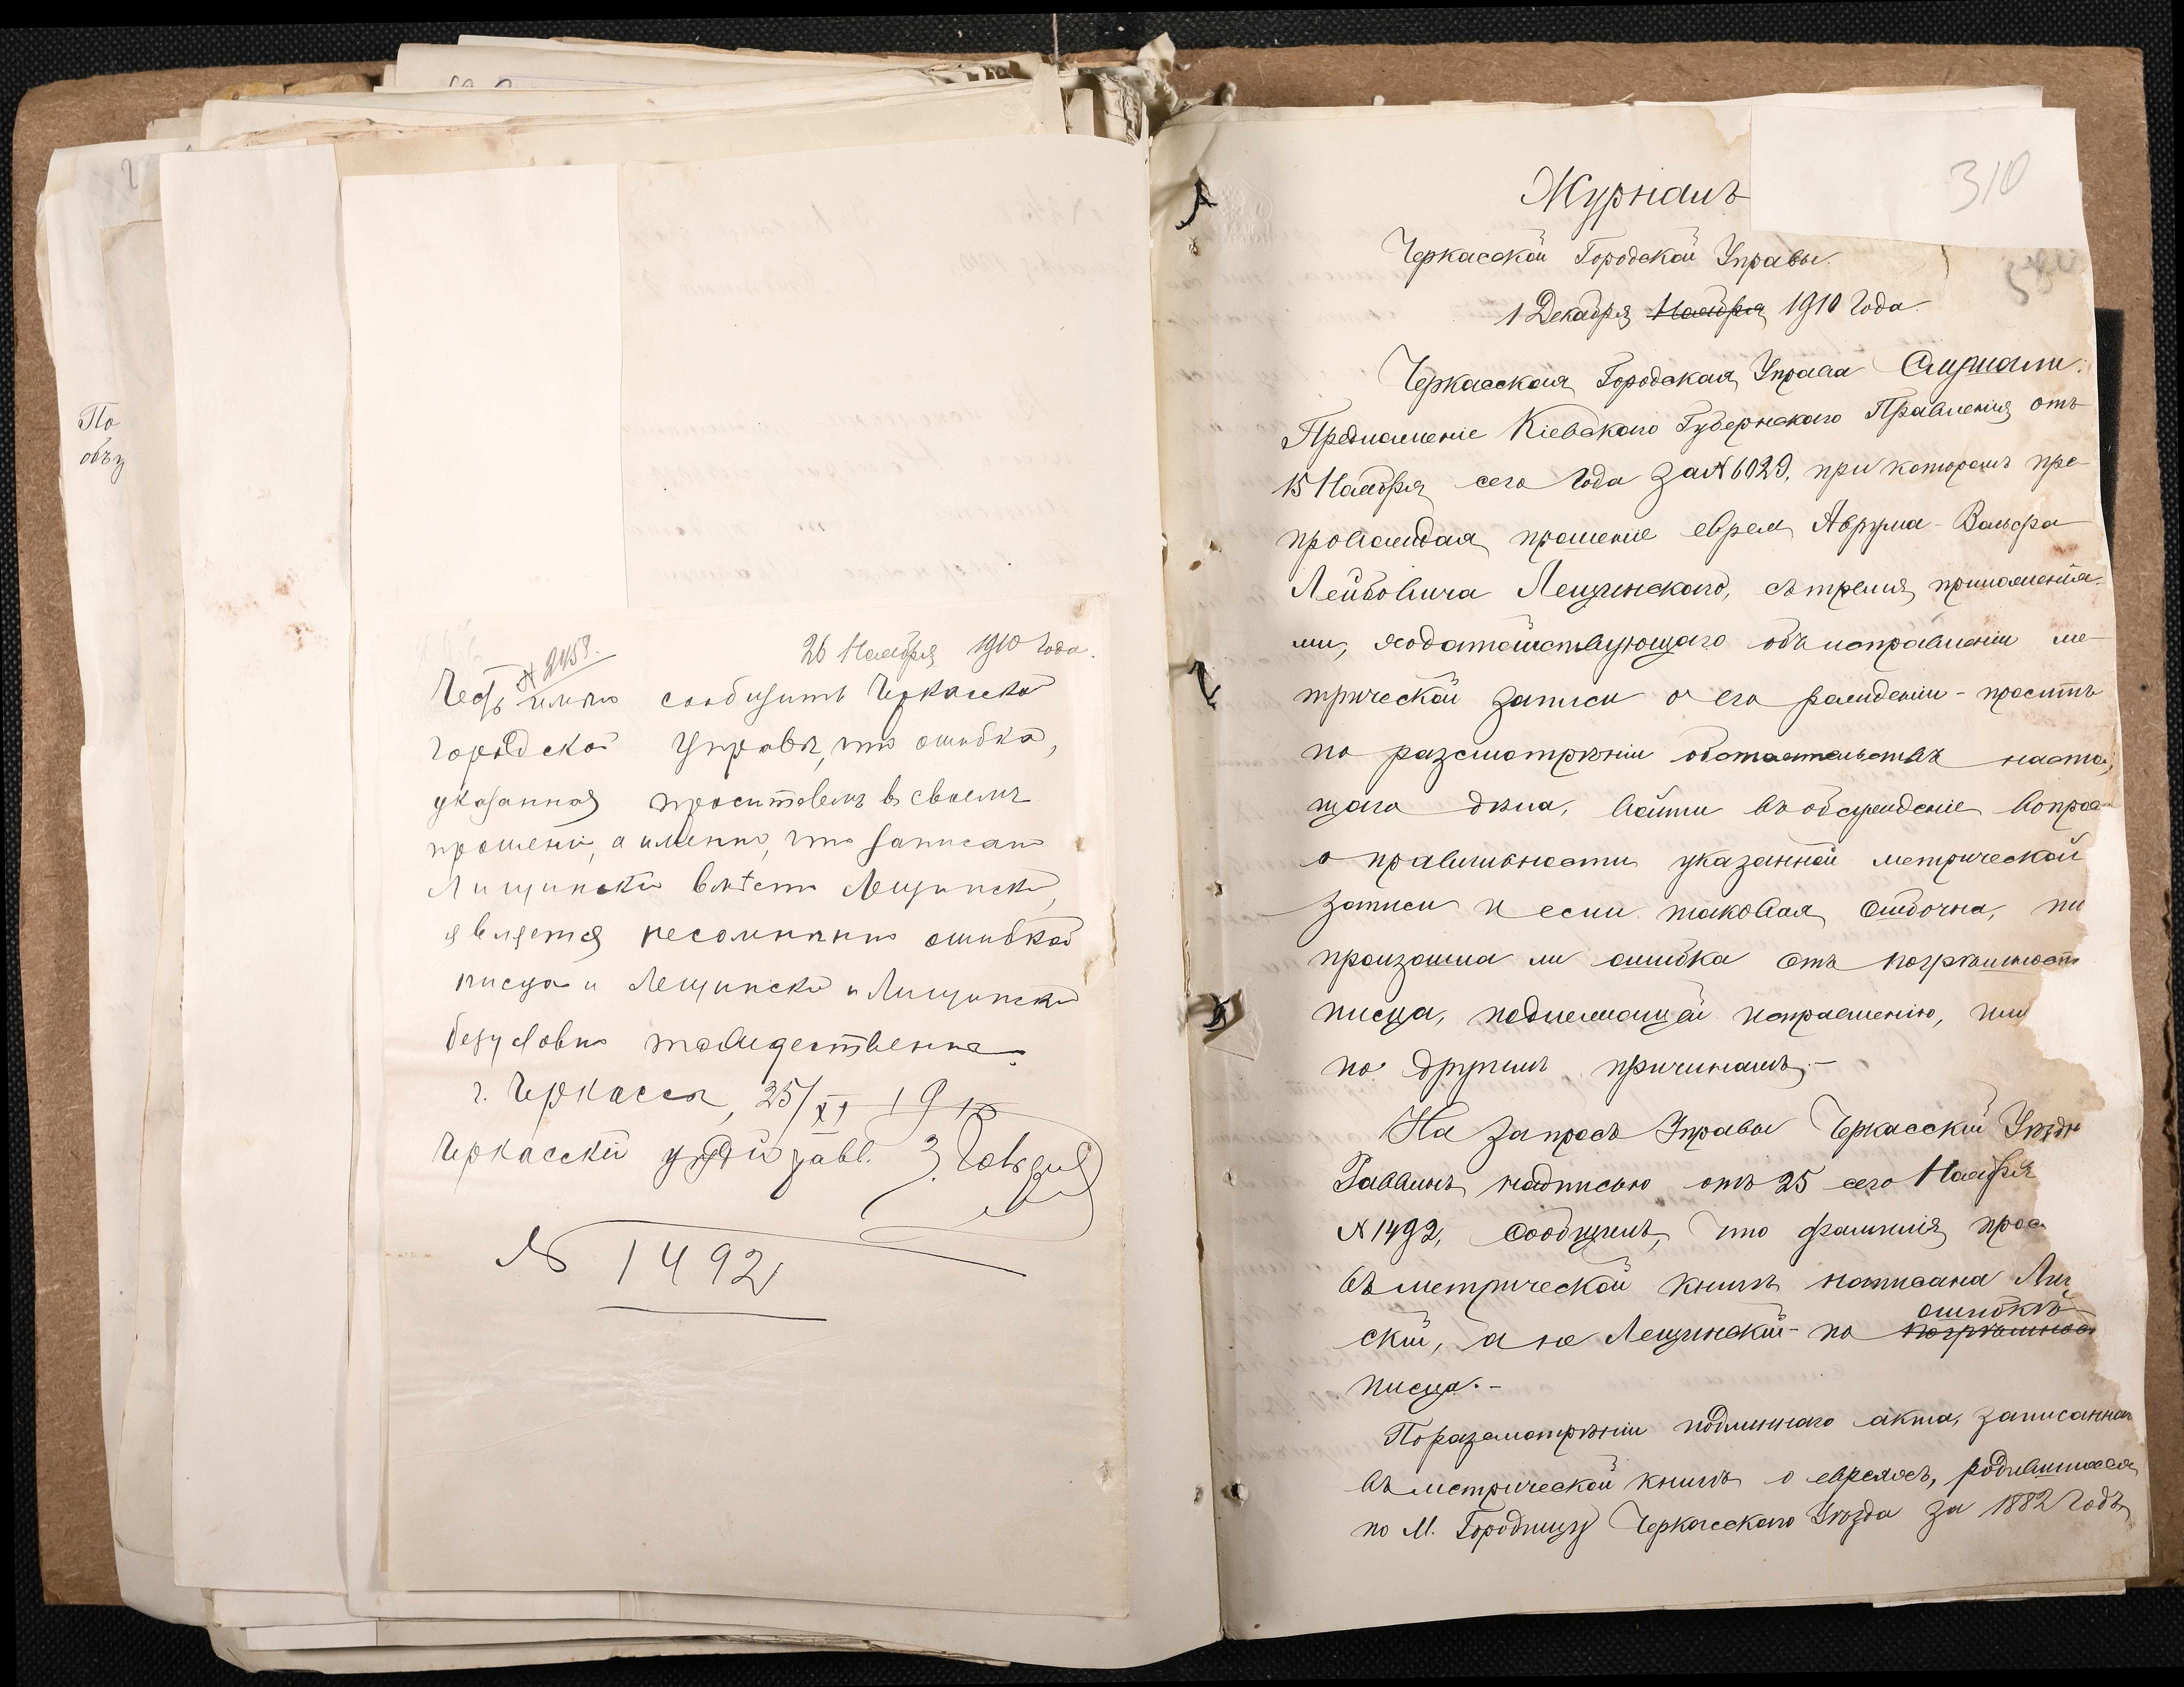 По
объу
№ 2458.
26 Ноября 1910 года.
Честь имѣю сообщить Черкаской
городской Управѣ, что ошибка,
указанная просителемъ въ своемъ
прошеніи, а именно, что записано
Лищинскій вмѣсто Лещинскій,
является несомнѣнно ошибкой
писца и Лещинскій и Лищинскій
безусловно тождественны.
г. Черкассы, 25/XI 1910
Черкасскій уѣздный равв.
№ 1492
310
Журналъ
Черкасской Городской Управы.
1 Декабря Ноября 1910 года.
Черкасская Городская Управа Слушали:
Предложеніе Кіевскаго Губернскаго Правленія отъ
15 Ноября сего года за № 6029, при которомъ пре-
провождая прошеніе еврея Аврума-Вольфа
Лейбовича Лещинскаго, съ тремя приложенія-
ми, ходатайствующаго объ исправленіи ме-
трической записи о его рожденіи - проситъ
по разсмотрѣніи обстоятельствъ настоя
щаго дѣла, войти въ обсужденіе вопрос
о правильности указанной метрической
записи и если таковая ошибочна, то
произошла ли ошибка отъ погрѣшност
писца, подлежащей исправленію, или
по другимъ причинамъ.-
На запросъ Управы Черкасскій Уѣздн
Раввинъ надписью отъ 25 сего Ноября
№ 1492, сообщилъ, что фамилія прос
въ метрической книгѣ написана Лищ
ошибкѣ
скій, а не Лещинскій - по погрѣшнос
писца.-
По разсмотрѣніи подлиннаго акта, записаннаго
въ метрической книгѣ о евреяхъ, родившихся
по М. Городищу Черкасскаго Уѣзда за 1882 годъ